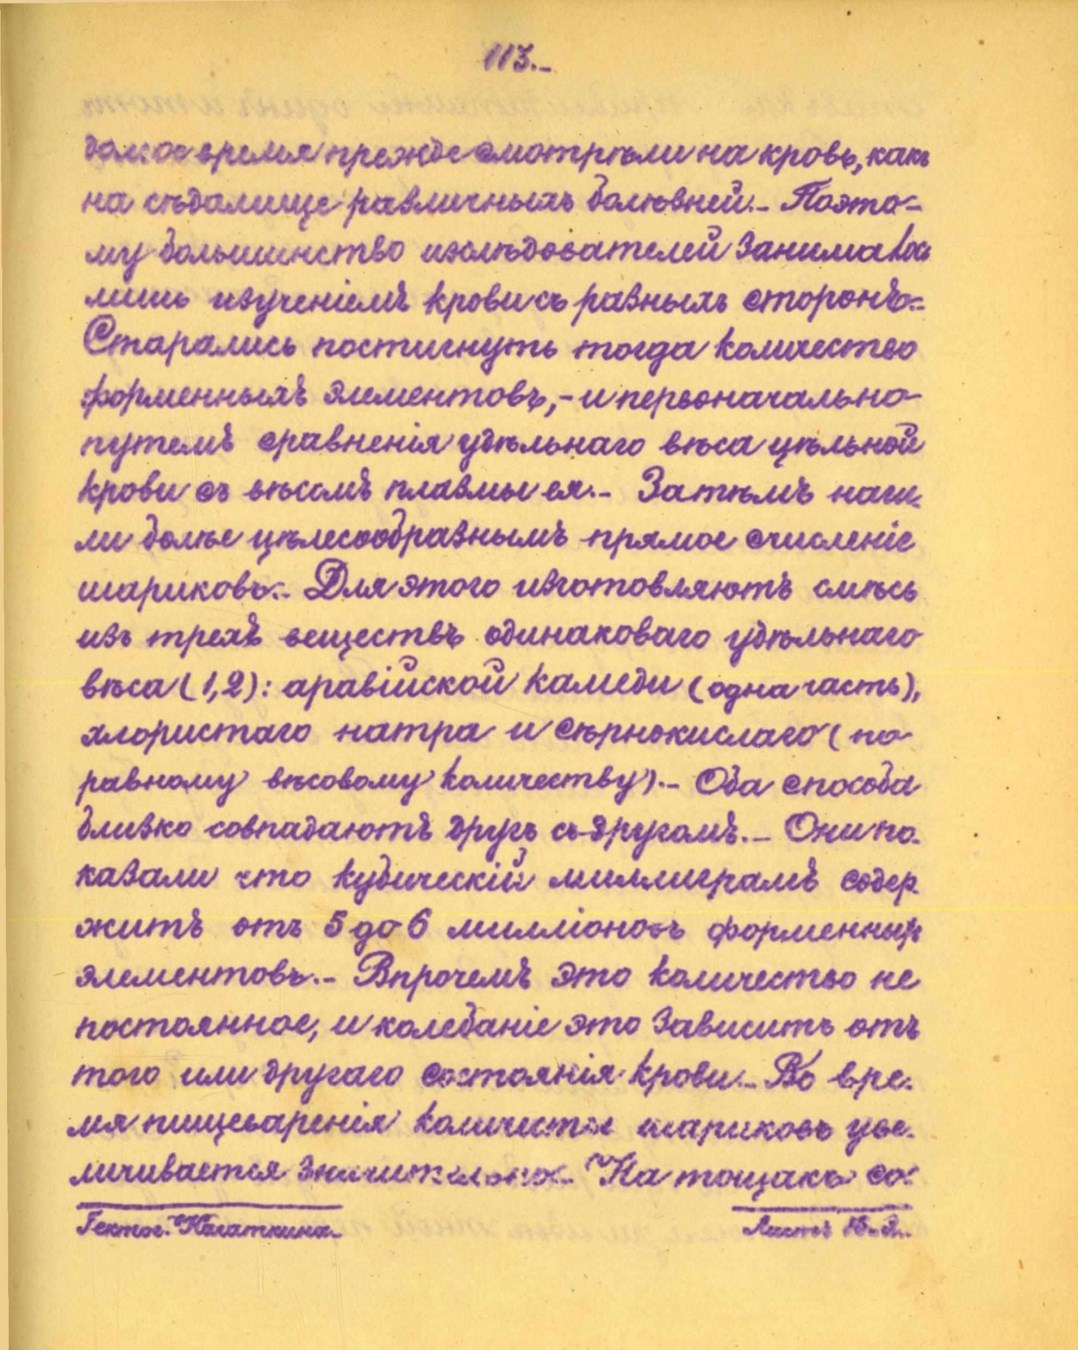 113.-
долгое время прежде смотрѣли на кровь, какъ
на сѣдалище различныхъ болѣзней.- Поэто-
му большинство изслѣдователей занималось
лишь изученіемъ крови съ разныхъ сторонъ.-
Старались постигнуть тогда количество
форменныхъ элементовъ,- и первоначально-
путемъ сравненія удѣльнаго вѣса цѣльной
крови съ вѣсомъ плазмы ея.- Затѣмъ наш-
ли болѣе цѣлесообразнымъ прямое счисленіе
шариковъ.- Для этого изготовляютъ смѣсь
изъ трехъ веществъ одинаковаго удѣльнаго
вѣса (1,2): аравійской камеди (одна часть),
хлористаго натра и сѣрнокислаго (по
равному вѣсовому количеству).- Оба способа
близко совпадаютъ другъ съ другомъ.- Они по-
казали что кубическій миллиграмъ содер
житъ отъ 5 до 6 милліоновъ форменных
элементовъ.- Впрочемъ это количество не
постоянное, и колебаніе это зависитъ отъ
того или другаго состоянія крови.- Во вре-
мя пищеваренія количество шариковъ уве-
личивается значительно.- На тощакъ со-
Гектог. Касаткина. Листъ 15-й.